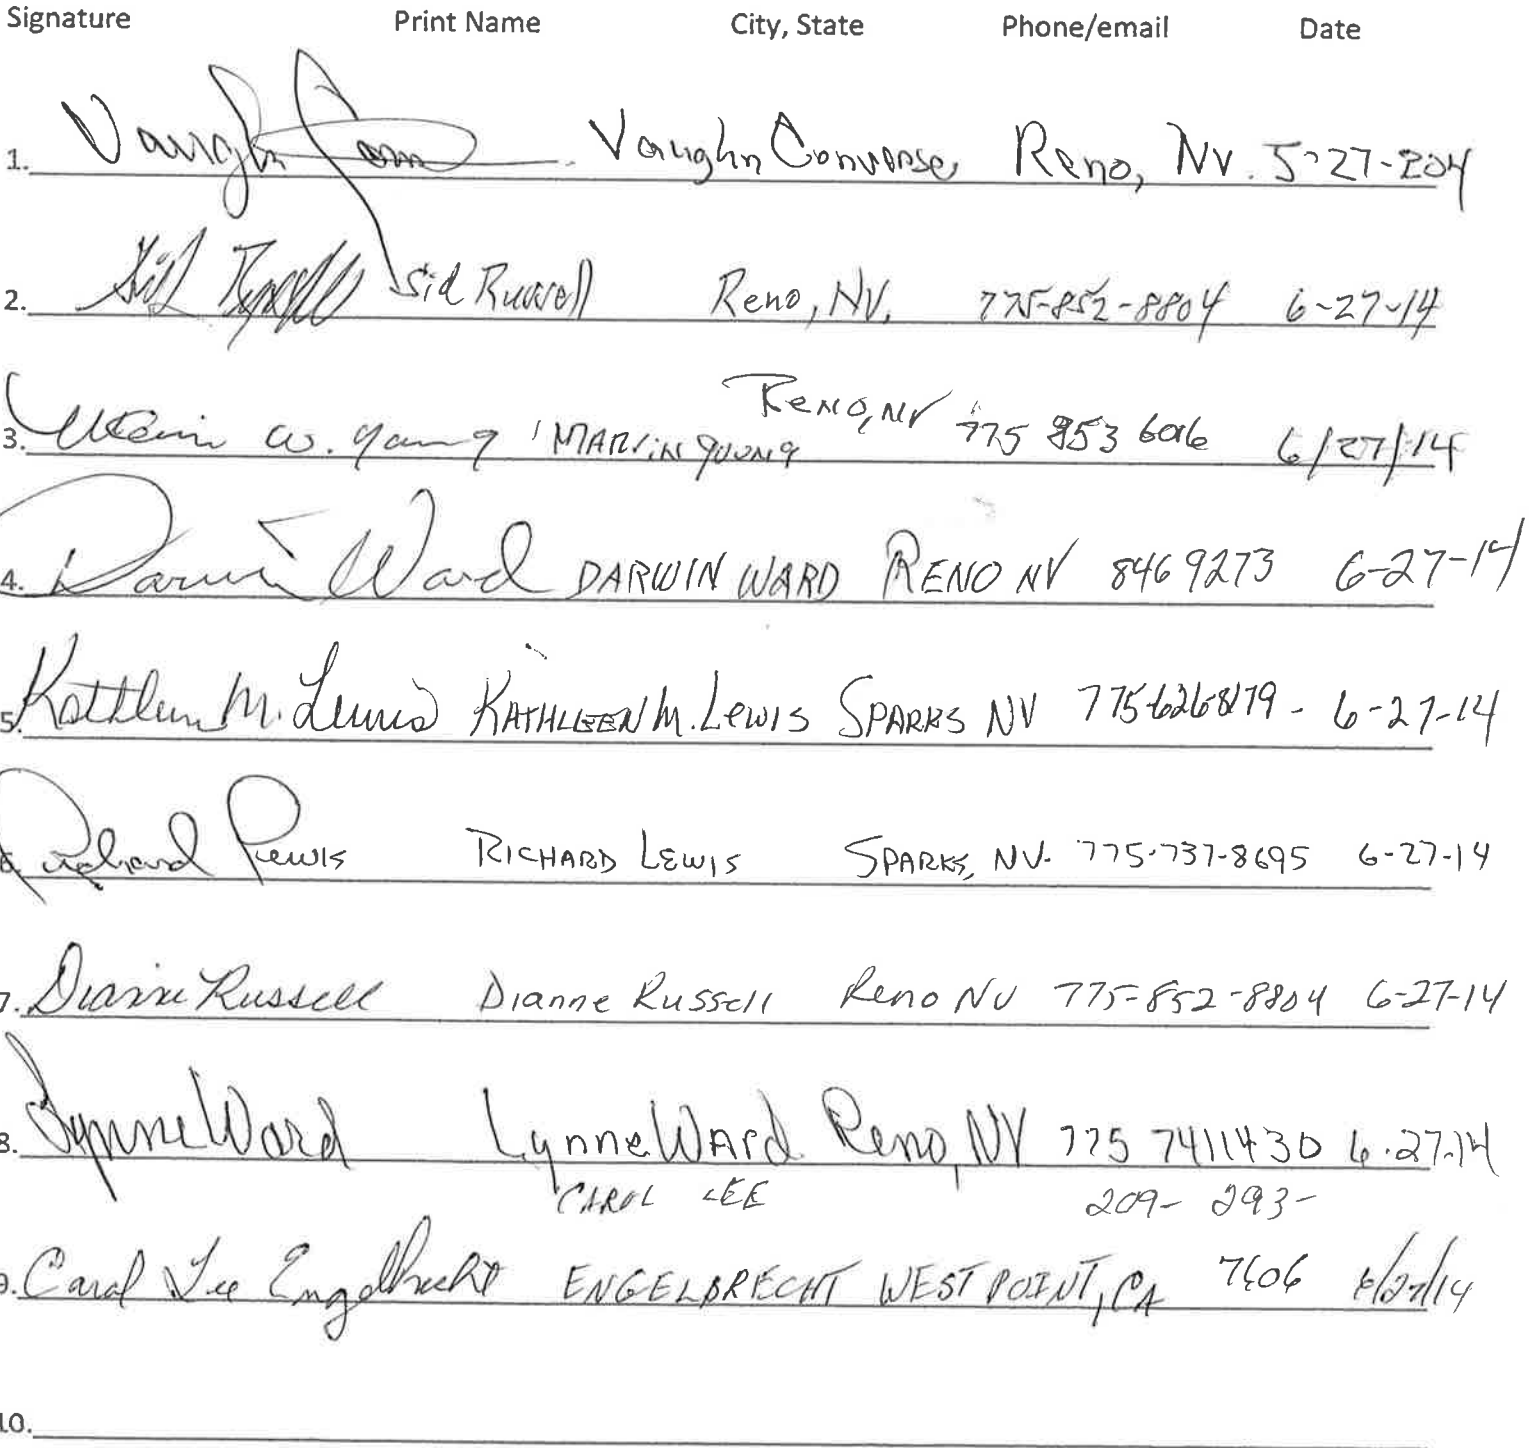 Signature Print Name City, State Phone/email Date
1. Vaughn Vaughn Converse Reno, NV. 5-27-204
2. Sid Russell Sid Russell Reno, NV. 775-852-8804 6-27-14
Reno, NV
3. W. Young MARVIN YOUNG 775 853 6016 6/27/14
4. Darwin Ward DARWIN WARD RENO NV 8469273 6-27-14
5. Kathleen M. Lewis KATHLEEN M. LEWIS SPARKS NV 775-626-8179 - 6-27-14
6. Richard Lewis RICHARD LEWIS SPARKS, NV. 775-737-8695 6-27-14
7. Dianne Russell Dianne Russell Reno NV 775-852-8804 6-27-14
8. Lynne Ward Lynne Ward Reno, NV 775 7411430 6-27-14
CAROL LEE 209- 293-
9. Carol Lee Engelbrecht ENGELBRECHT WEST POINT, CA 7606 6/27/14
10.